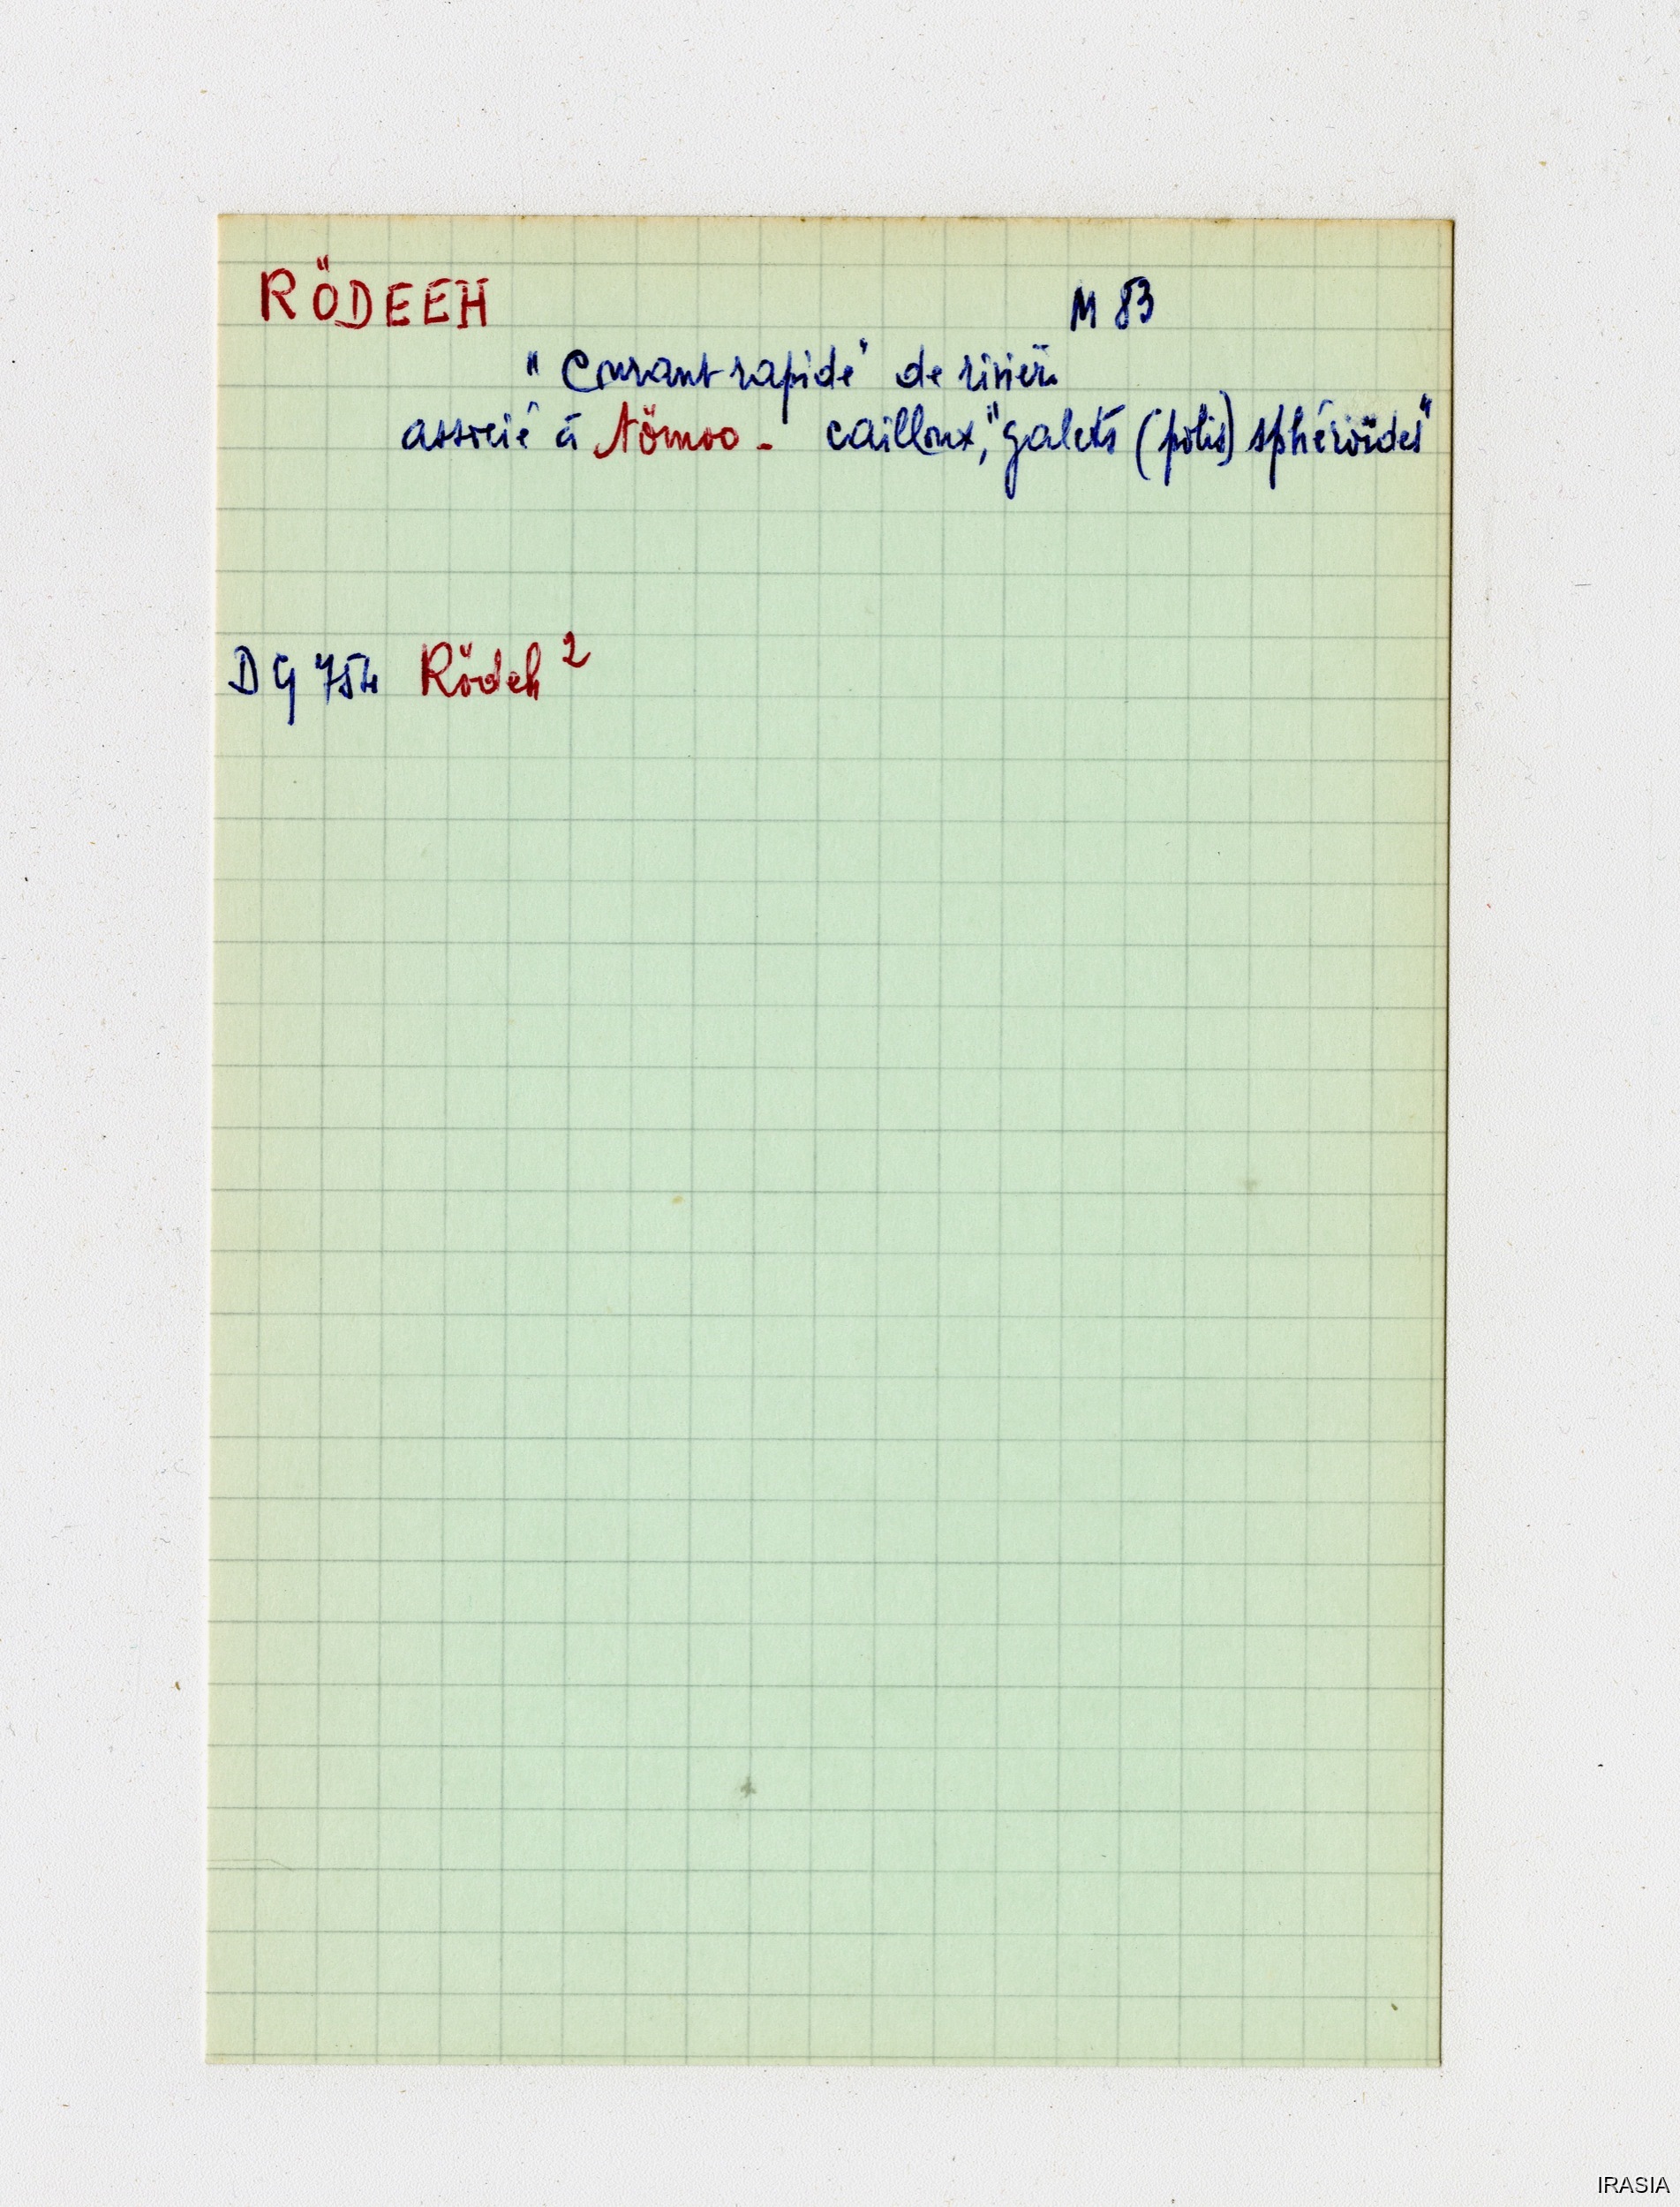 RÖDEEH M 83
"Courant rapide" de rivière
associé à tömoo - cailloux, "galets (polis) sphéroïdes"
DG 754 Rödeh 2
IRASIA